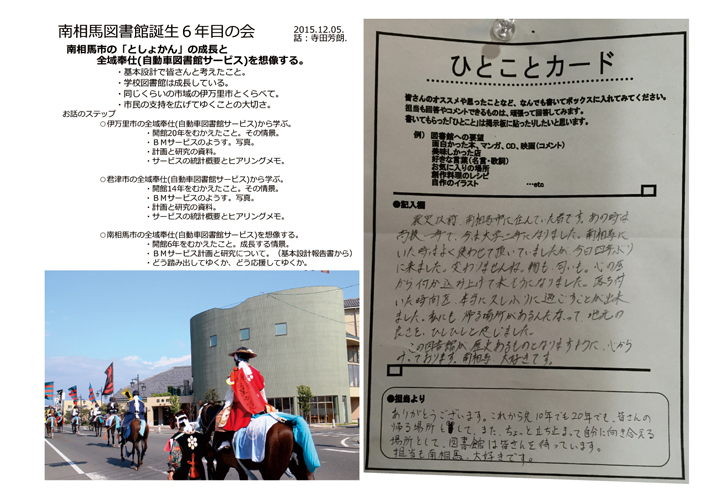 南相馬図書館誕生６年目の会
2015.12.05.
話：寺田芳朗.
南相馬市の「としょかん」の成長と
全域奉仕(自動車図書館サービス)を想像する。
・基本設計で皆さんと考えたこと。
・学校図書館は成長している。
・同じくらいの市域の伊万里市とくらべて。
・市民の支持を広げてゆくことの大切さ。
お話のステップ
○伊万里市の全域奉仕(自動車図書館サービス)から学ぶ。
・開館20年をむかえたこと。その情景。
・ＢＭサービスのようす。写真。
・計画と研究の資料。
・サービスの統計概要とヒアリングメモ。
○君津市の全域奉仕(自動車図書館サービス)から学ぶ。
・開館14年をむかえたこと。その情景。
・ＢＭサービスのようす。写真。
・計画と研究の資料。
・サービスの統計概要とヒアリングメモ。
○南相馬市の全域奉仕(自動車図書館サービス)を想像する。
・開館6年をむかえたこと。成長する情景。
・ＢＭサービス計画と研究について。（基本設計報告書から）
・どう踏み出してゆくか、どう応援してゆくか。
ひとことカード
皆さんのオススメや思ったことなど、なんでも書いてボックスに入れてみてください。
担当も回答やコメントできるものは、頑張って回答してみます。
書いてもらった「ひとこと」は掲示板に貼ったりしたいと思います。
例）図書館への要望
面白かった本、マンガ、CD、映画（コメント）
美味しかった店
好きな言葉（名言・歌詞）
お気に入りの場所
創作料理のレシピ
自作のイラスト …etc
●記入欄
震災以前、南相馬市に住んでいた者です。あの時は
高校一年で、今年大学二年になりました。南相馬に
いた時はよく使わせて頂いていましたが、今日四年ぶり
に来ました。変わりませんね。棚も、匂いも。心の底
から何かが込み上げて来そうになりました。落ち着
いた時間を、本当に久しぶりに過ごすことが出来
ました。私にも帰る場所があるんだなって地元の
良さを、ひしひしと感じました。
この図書館が歴史あるものとなりますように、心から
祈っております。南相馬、大好きです。
●担当より
ありがとうございます。これから先10年でも20年でも、皆さんの
帰る場所として、また、ちょっと立ち止まって自分に向き合える
場所として、図書館は皆さんを待っています。
担当も南相馬、大好きです。